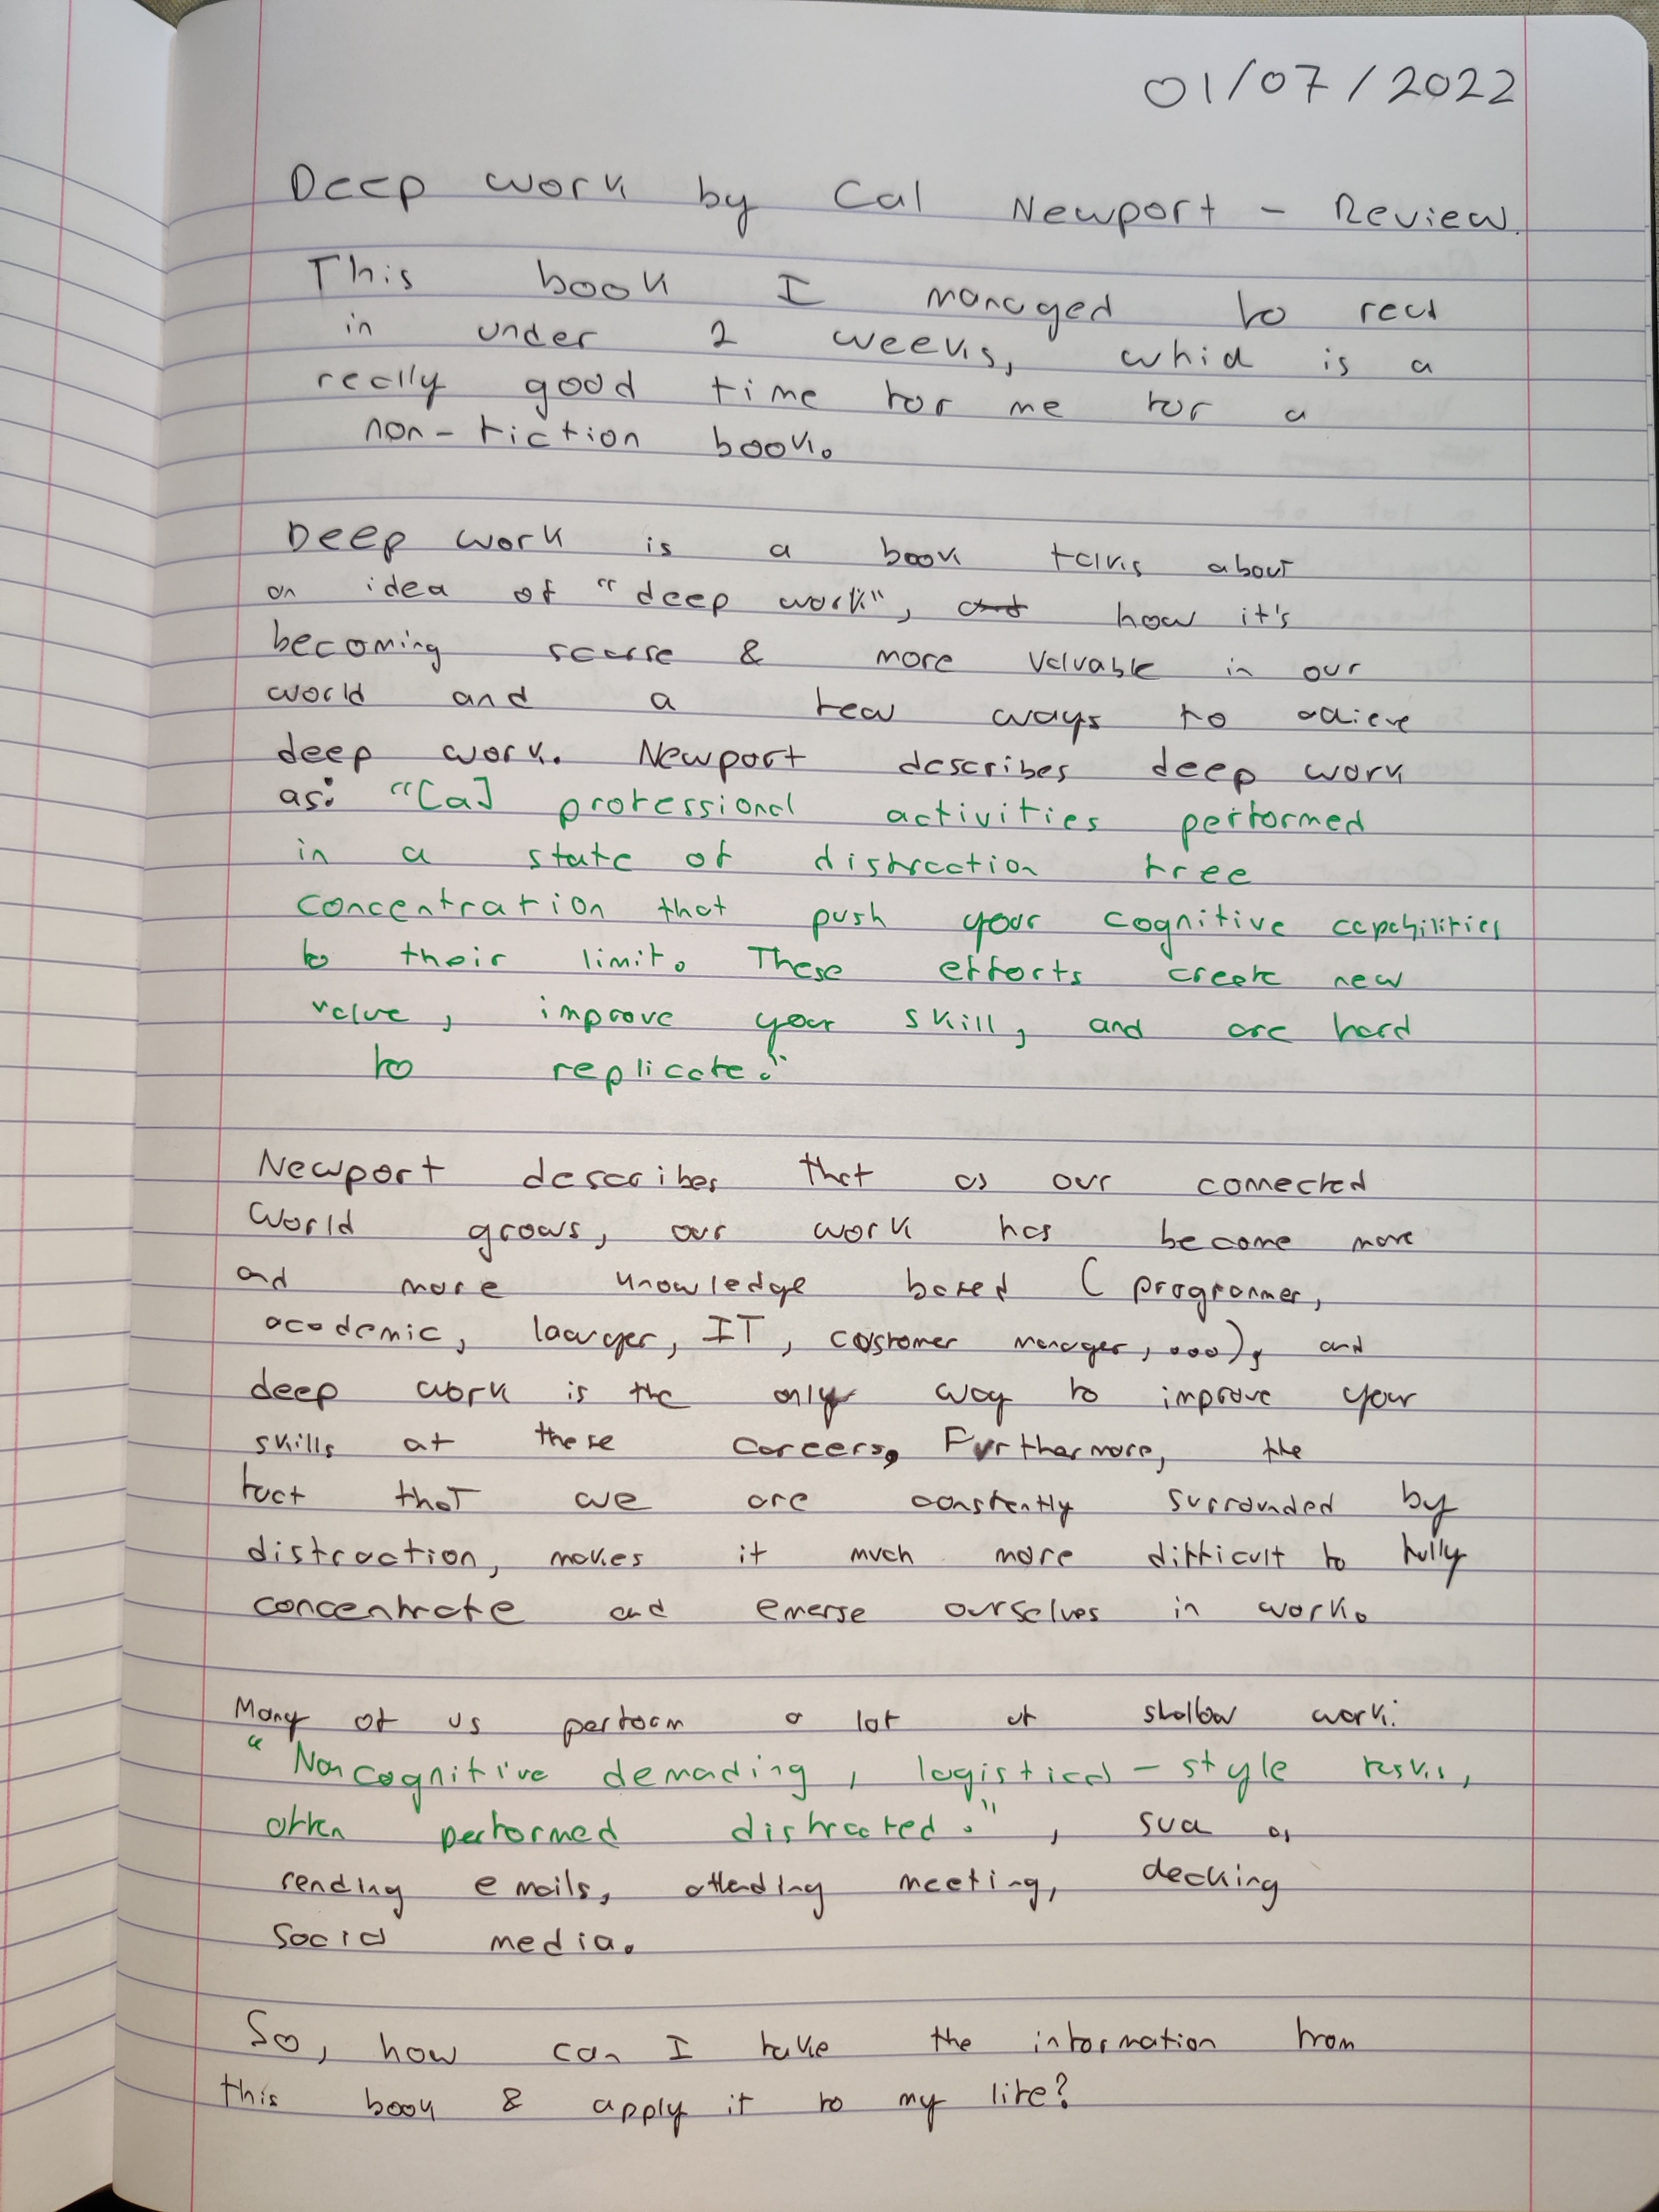 01/07/2022
Deep work by Cal Newport - Review.
This book I managed to read
in under 2 weeks, which is a
really good time for me for a
non-fiction book.
Deep work is a book talks about
an idea of "deep work", and how it's
becoming scarse & more valuable in our
world and a few ways to achieve
deep work. Newport describes deep work
as: "[a] professional activities performed
in a state of distraction free
concentration that push your cognitive capabilities
to their limit. These efforts create new
value, improve your skill, and are hard
to replicate."
Newport describes that as our connected
world grows, our work has become more
and more knowledge based (programmer,
academic, lawyer, IT, customer manager, ...), and
deep work is the only way to improve your
skills at these careers. Furthermore, the
fact that we are constantly surrounded by
distraction, makes it much more difficult to fully
concentrate and emerse ourselves in work.
Many of us perform a lot of shallow work:
"Noncognitive demading, logistical-style tasks,
often performed distracted.", such as
sending emails, attending meeting, checking
social media.
So, how can I take the information from
this book & apply it to my life?